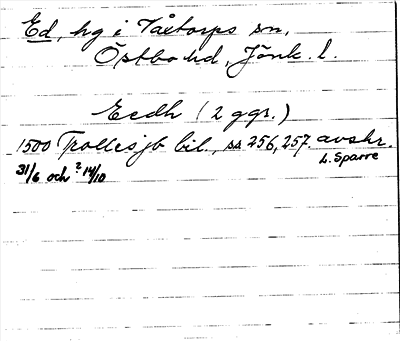 Ed, hg i Våxtorps sn,
Östbo hd, Jönk. l.
Eedh (2 ggr.)
1500 Trolles jb bil., ss 256, 257. avskr.
31/6 och ? 14/10 L. Sparre